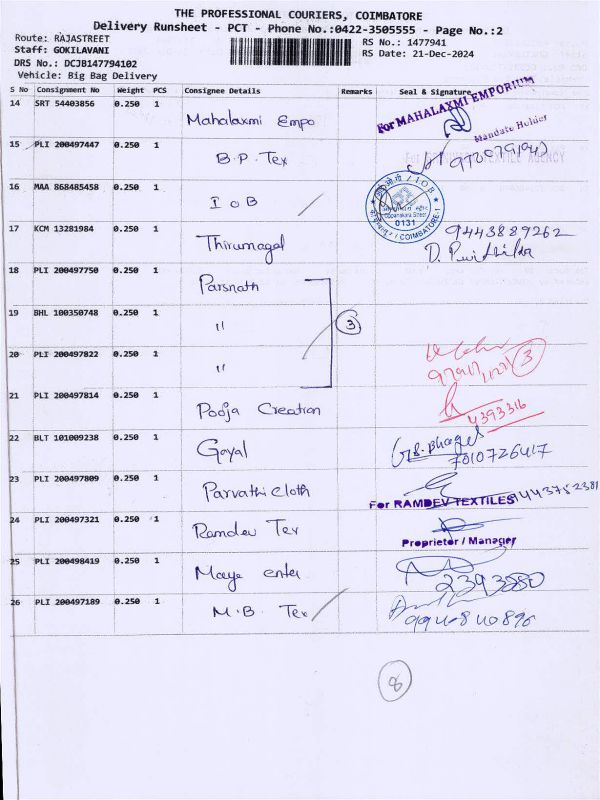 THE PROFESSIONAL COURIERS, COIMBATORE
Delivery Runsheet - PCT - Phone No.:0422-3505555 - Page No.:2
Route: RAJASTREET
RS No.: 1477941
Staff: GOKILAVANI
RS Date: 21-Dec-2024
DRS No.: DCJB147794102
Vehicle: Big Bag Delivery
S No Consignment No Weight PCS Consignee Details Remarks Seal & Signature
14 SRT 54403856 0.250 1 Mahalaxmi Empo
For MAHALAXMI EMPORIUM
Mandate Holder
15 PLI 200497447 0.250 1 B.P. Tex
16 MAA 868485458 0.250 1 I O B
0131
COIMBATORE-1
17 KCM 13281984 0.250 1 Thirumagal 9443889262
18 PLI 200497750 0.250 1 Parsnath
19 BHL 100350748 0.250 1 " 3
20 PLI 200497822 0.250 1 " 3
21 PLI 200497814 0.250 1 Pooja Creation 4393316
22 BLT 101009238 0.250 1 Goyal G.S. Bhagel
7010726417
23 PLI 200497809 0.250 1 Parvathi cloth 9443752381
For RAMDEV TEXTILES
24 PLI 200497321 0.250 1 Ramdev Tex
Proprietor / Manager
25 PLI 200498419 0.250 1 Maaye enter 2393580
26 PLI 200497189 0.250 1 M.B. Tex
8